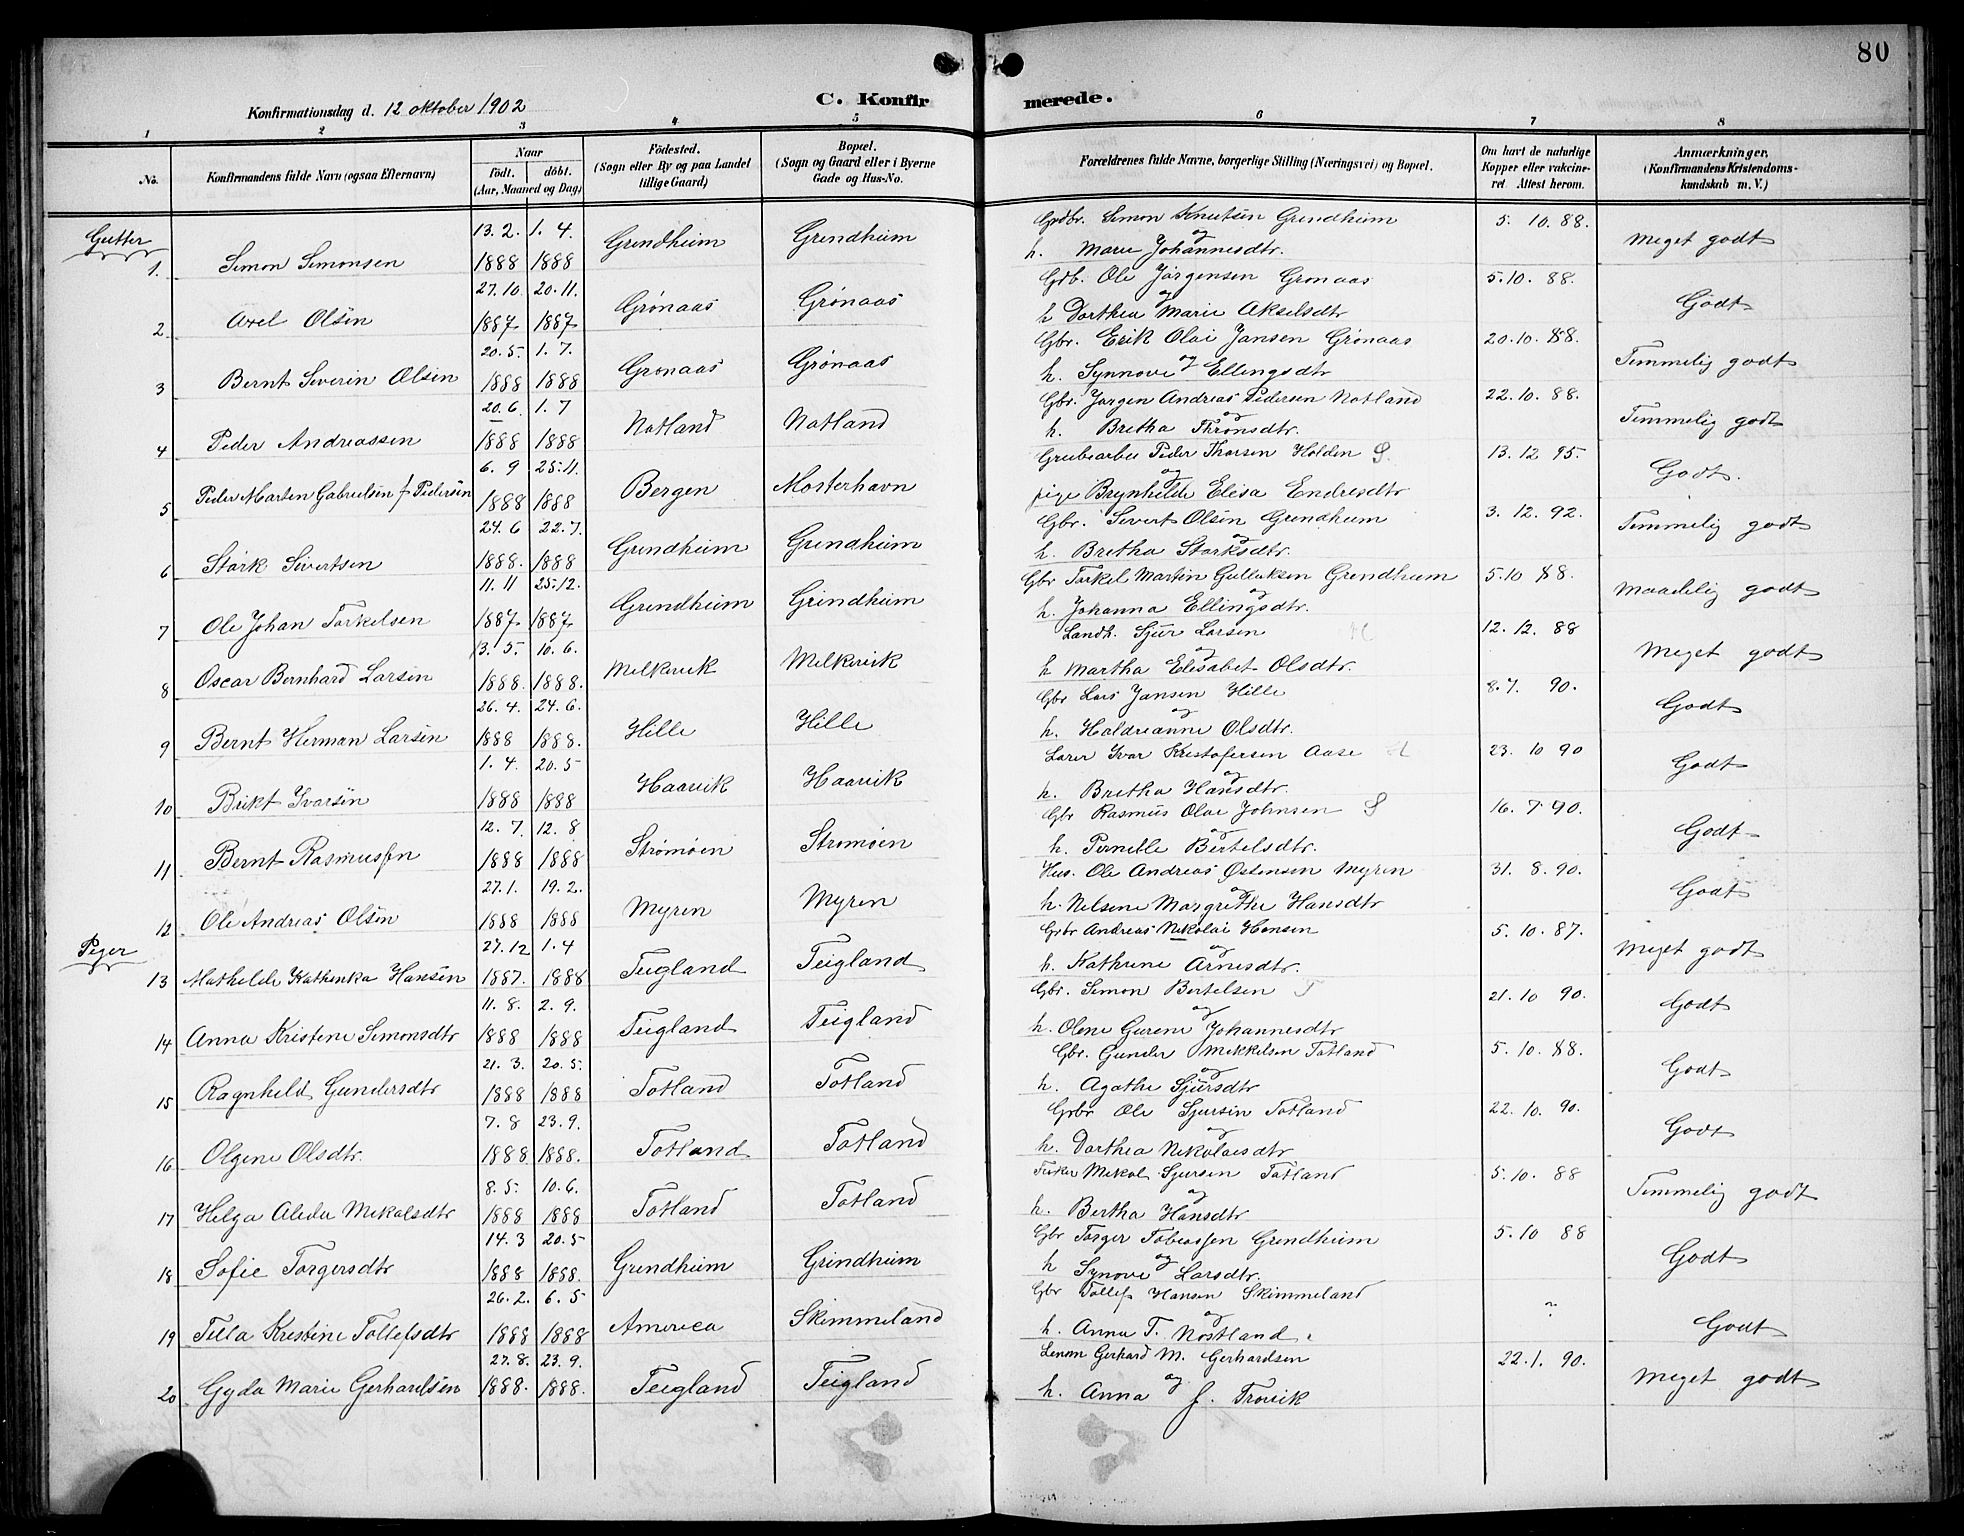 80
Konfirmationsdag d. 12 oktober 1902
C. Konfirmerede.
1 2 3 4 5 6 7 8
No.
Konfirmandens fulde Navn (ogsaa Efternavn)
Naar
födt. döbt.
(Aar, Maaned og Dag)
Födested.
(Sogn eller By og paa Landet
tillige Gaard)
Bopæl.
(Sogn og Gaard eller i Byerne
Gade og Hus-No.
Forældrenes fulde Navne, borgerlige Stilling (Næringsvei) og Bopæl.
Om havt de naturlige
Kopper eller vakcine-
ret Attest herom.
Anmærkninger,
(Konfirmandens Kristendoms-
kundskab m. V.)
Gutter
13. 2. 1. 4. Grdbr. Simon Knutsen Grindheim 5. 10. 88.
1. Simon Simonsen 1888 1888 Grindheim Grindheim og h. Marie Johannesdtr. Meget godt
27. 10. 20. 11. Gdb. Ole Jørgensen Grønaas 5. 10. 88.
2. Axel Olsen 1887 1887 Grønaas Grønaas og h Dorthea Marie Akselsdtr Godt
20. 5. 1. 7. Gbr. Erik Olai Jansen Grønaas 20. 10. 88.
3 Bernt Severin Olsen 1888 1888 Grønaas Grønaas og h. Synnove Ellingsdtr Temmelig godt
20. 6. 1. 7 Gbr. Jørgen Andreas Pedersen Notland 22. 10. 88.
4 Peder Andreassen 1888 1888 Notland Notland og h. Bretha Thronsdtr. Temmelig godt
6. 9 25. 11. Grubearbei Peder Thorsen Holden S. 13. 12 95.
5 Peder Marten Gabrielsen f Pedersen 1888 1888 Bergen Mosterhavn og pige Brynhilde Elisa Endresdtr Godt.
24. 6 22. 7. Gbr. Sivert Olsen Grindheim 3. 12. 92.
6 Stark Sivertsen 1888. 1888 Grindheim Grindheim og h. Bretha Starksdtr. Temmelig godt
11. 11 25. 12. Gbr Torkel Martin Gulleksen Grindheim 5. 10 88.
7 Ole Johan Torkelsen 1887 1887 Grindheim Grindheim og h. Johanna Ellingsdtr. Maadelig godt
13. 5. 10. 6. Landh. Sjur Larsen 12. 12. 88
8 Oscar Bernhard Larsen 1888. 1888. Melkevik Melkevik og h Martha Elisabet Olsdtr. Meget godt
26. 4. 24. 6. Gbr Lars Jansen Hille 8. 7. 90.
9 Bernt Herman Larsen 1888 1888. Hille Hille og h. Haldrianne Olsdtr. Godt
1. 4. 20. 5 Lærer Ivar Kristofersen Aase 23. 10 90
10 Brikt Ivarsen 1888 1888 Haavik Haavik og h. Bretha Hansdtr. Godt
12. 7. 12. 8 Gbr Rasmus Olai Johnsen S 16. 7 90.
11 Bernt Rasmussen 1888 1888 Strømøen Strømøen og h. Pernille Bertelsdtr. Godt
27. 1. 19. 2. Hus. Ole Andreas Østensen Myren 31. 8. 90.
12 Ole Andreas Olsen 1888 1888 Myren Myren og h. Nelsine Margrethe Hansdtr Godt
Piger
27. 12 1. 4 Grbr Andreas Nikolai Hansen 5. 10. 87.
13 Mathilde Kathinka Hansen 1887. 1888 Teigland Teigland og h. Kathrine Arnesdtr. Meget godt
11. 8. 2. 9. Gbr. Simon Bertelsen T 21. 10 90.
14 Anna Kristine Simonsdtr 1888 1888 Teigland Teigland og h. Olene Gurene Johannesdtr Godt
21. 3. 20. 5. Gbr. Gunder Mikkelsen Totland 5. 10. 88.
15 Ragnhild Gundersdtr 1888 1888 Totland Totland og h. Agathe Sjursdtr Godt
7. 8 23. 9. Grbr Ole Sjursen Totland 22. 10. 90.
16 Olgene Olsdtr. 1888 1888. Totland Totland og h. Dorthea Nikolaisdtr Godt
8. 5. 10. 6. Fisker Mikal Sjursen Totland 5. 10. 88
17 Helga Alida Mikalsdtr 1888 1888 Totland Totland og h. Bertha Hansdtr Temmelig godt
14. 3 20. 5 Gbr Torger Tobiassen Grindheim 5. 10 88
18 Sofie Torgersdtr 1888 1888. Grindheim Grindheim og h Synove Larsdtr. Godt
26. 2. 6. 5 Gbr Tollef Hansen Skimmeland
19 Tilla Kristine Tollefsdtr 1888 1888 America Skimmeland og h. Anna T. Nostland Godt
27. 8. 23. 9. Lensm Gerhard M. Gerhardsen 22. 1. 90.
20 Gyda Marie Gerhardsen 1888. 1888. Teigland Teigland og h. Anna J. Trovik Meget godt